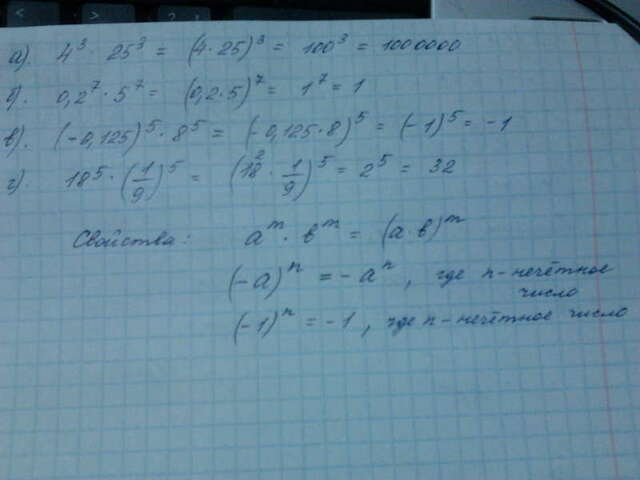 а). 4³ · 25³ = (4·25)³ = 100³ = 1000000
б). 0,2⁷ · 5⁷ = (0,2·5)⁷ = 1⁷ = 1
в). (-0,125)⁵ · 8⁵ = (-0,125·8)⁵ = (-1)⁵ = -1
г). 18⁵ · (1/9)⁵ = (18² · 1/9)⁵ = 2⁵ = 32
Свойства: aᵐ · bᵐ = (a b)ᵐ
(-a)ⁿ = -aⁿ, где n - нечётное
число
(-1)ⁿ = -1, где n - нечётное число